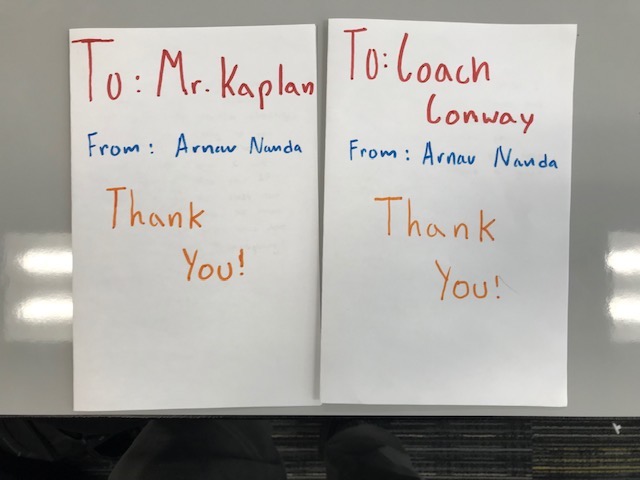 To: Mr. Kaplan
From: Arnav Nanda
Thank
You!
To: Coach
Conway
From: Arnav Nanda
Thank
You!